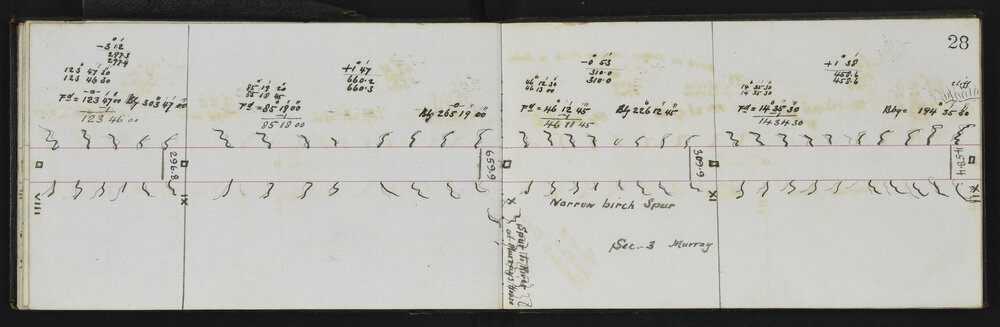 28
-3° 12'
297.3
297.4
123° 47' 20"
123 46 30
Fd = 123 47 00 Bkg 303° 47' 00"
-1
123 46 00
296.8
VIII
IX
+1° 47'
660.2
660.3
85° 19' 20"
85 18 45
Fd = 85° 19' 00"
-1
85 18 00
Bkg 265° 19' 00"
659.9
X
-0° 53'
310.0
310.0
46° 12' 30"
46 13 00
Fd = 46° 12' 45"
-1
46 11 45
Bkg 226° 12' 45"
309.9
XI
Narrow birch Spur
Spur to River
at Murray's
Sec. 3 Murray
+1° 38'
458.6
458.6
14° 35' 30"
14 35 30
Fd = 14° 35' 30"
-1
14 34 30
Bkg = 194° 35' 30"
cliff
458.4
XII